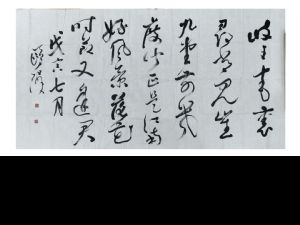 岐王宅裏
尋常見崔
九堂前幾
度聞正是江南
好風景落花
時節又逢君
戊 七月